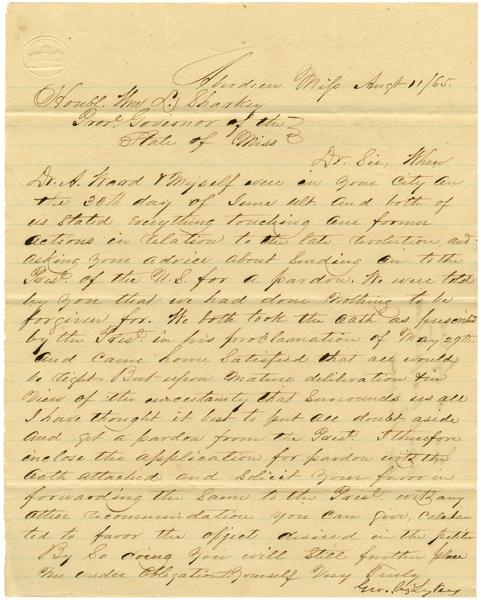 Aberdeen Miss Augt 11/65.
Honbl. Wm L. Sharkey
Prov. Governor of the
State of Miss
Dr. Sir, When
Dr. A. Ward & Myself were in your City on
the 30th day of June ult and both of
us Stated everything touching our former
actions in relation to the late revolution, and
asking your advice about Sending on to the
Prest. of the U.S. for a pardon. We were told
by you that we had done nothing to be
forgiven for. We both took the oath as prescribed
by the Prest. in his proclamation of May 29th
and came home Satisfied that all would
be right. But upon mature deliberation & in
view of the uncertainty that Surrounds us all
I have thought it best to put all doubt aside
and get a pardon from the Prest. I therefore
inclose the application for pardon with the
oath attached and Solicit your favor in
forwarding the Same to the Prest. with any
other recommendation you can give, Calcula
ted to favor the object desired in the petition
By So doing you will Still further place
me under obligations. Yourself Very Truly
Geo.